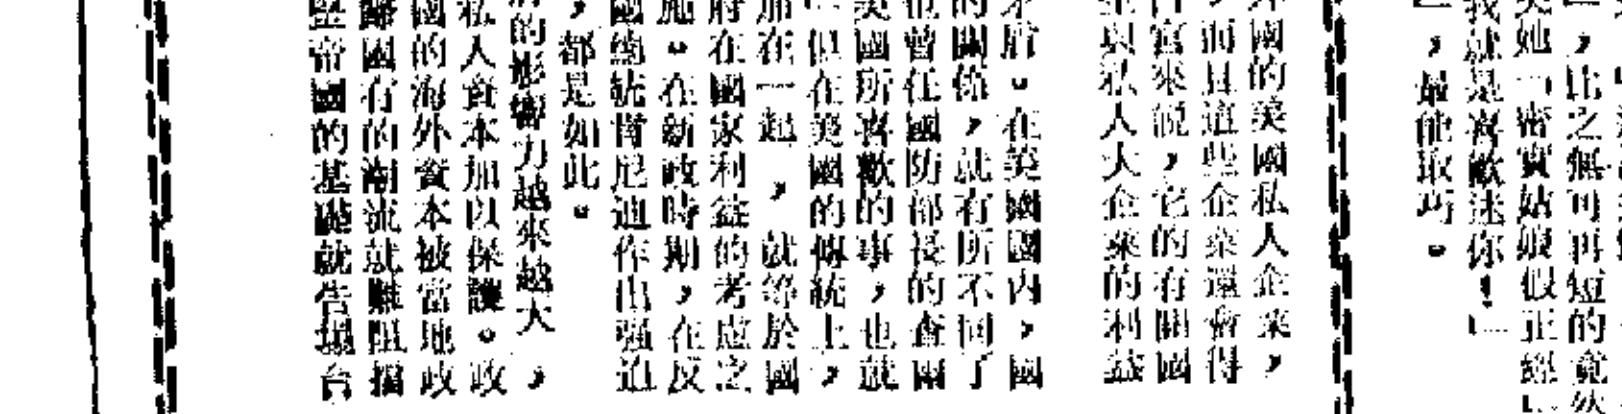 ，比之無可再短的竟然
她「密實姑娘假正經」
我就是喜歡迷你！﹂
，最能取巧。
外國的美國私人企業，
，而且這些企業還會得
官來說，它的有關國
與私人大企業的利益
矛盾。在美國國內，國
的關係，就有所不同了
也曾任國防部長的查爾
美國所喜歡的事，也就
但在美國的傳統上，
在一起，就等於國
府在國家利益的考慮之
施。在新政時期，在反
國總統甘尼迪作出強迫
，都是如此。
的影響力越來越大，
私人資本加以保護。政
國的海外資本被當地政
歸國有的潮流就難阻擋
帝國的基礎就告塌台